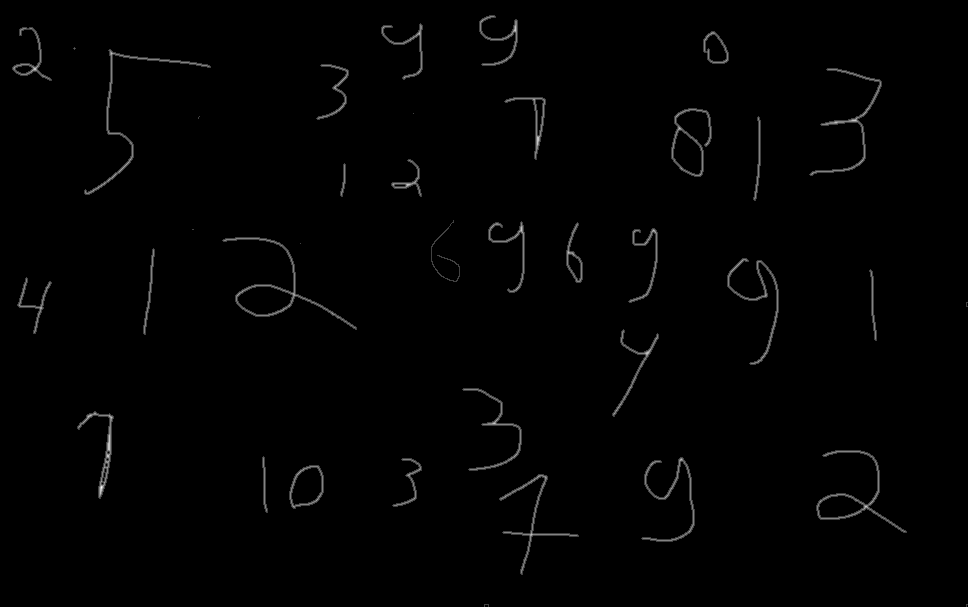 2 5 3 9 9 7 0 8 1 3
1 2
4 1 2 6 9 6 9 9 1
y
7 10 3 3 7 9 2